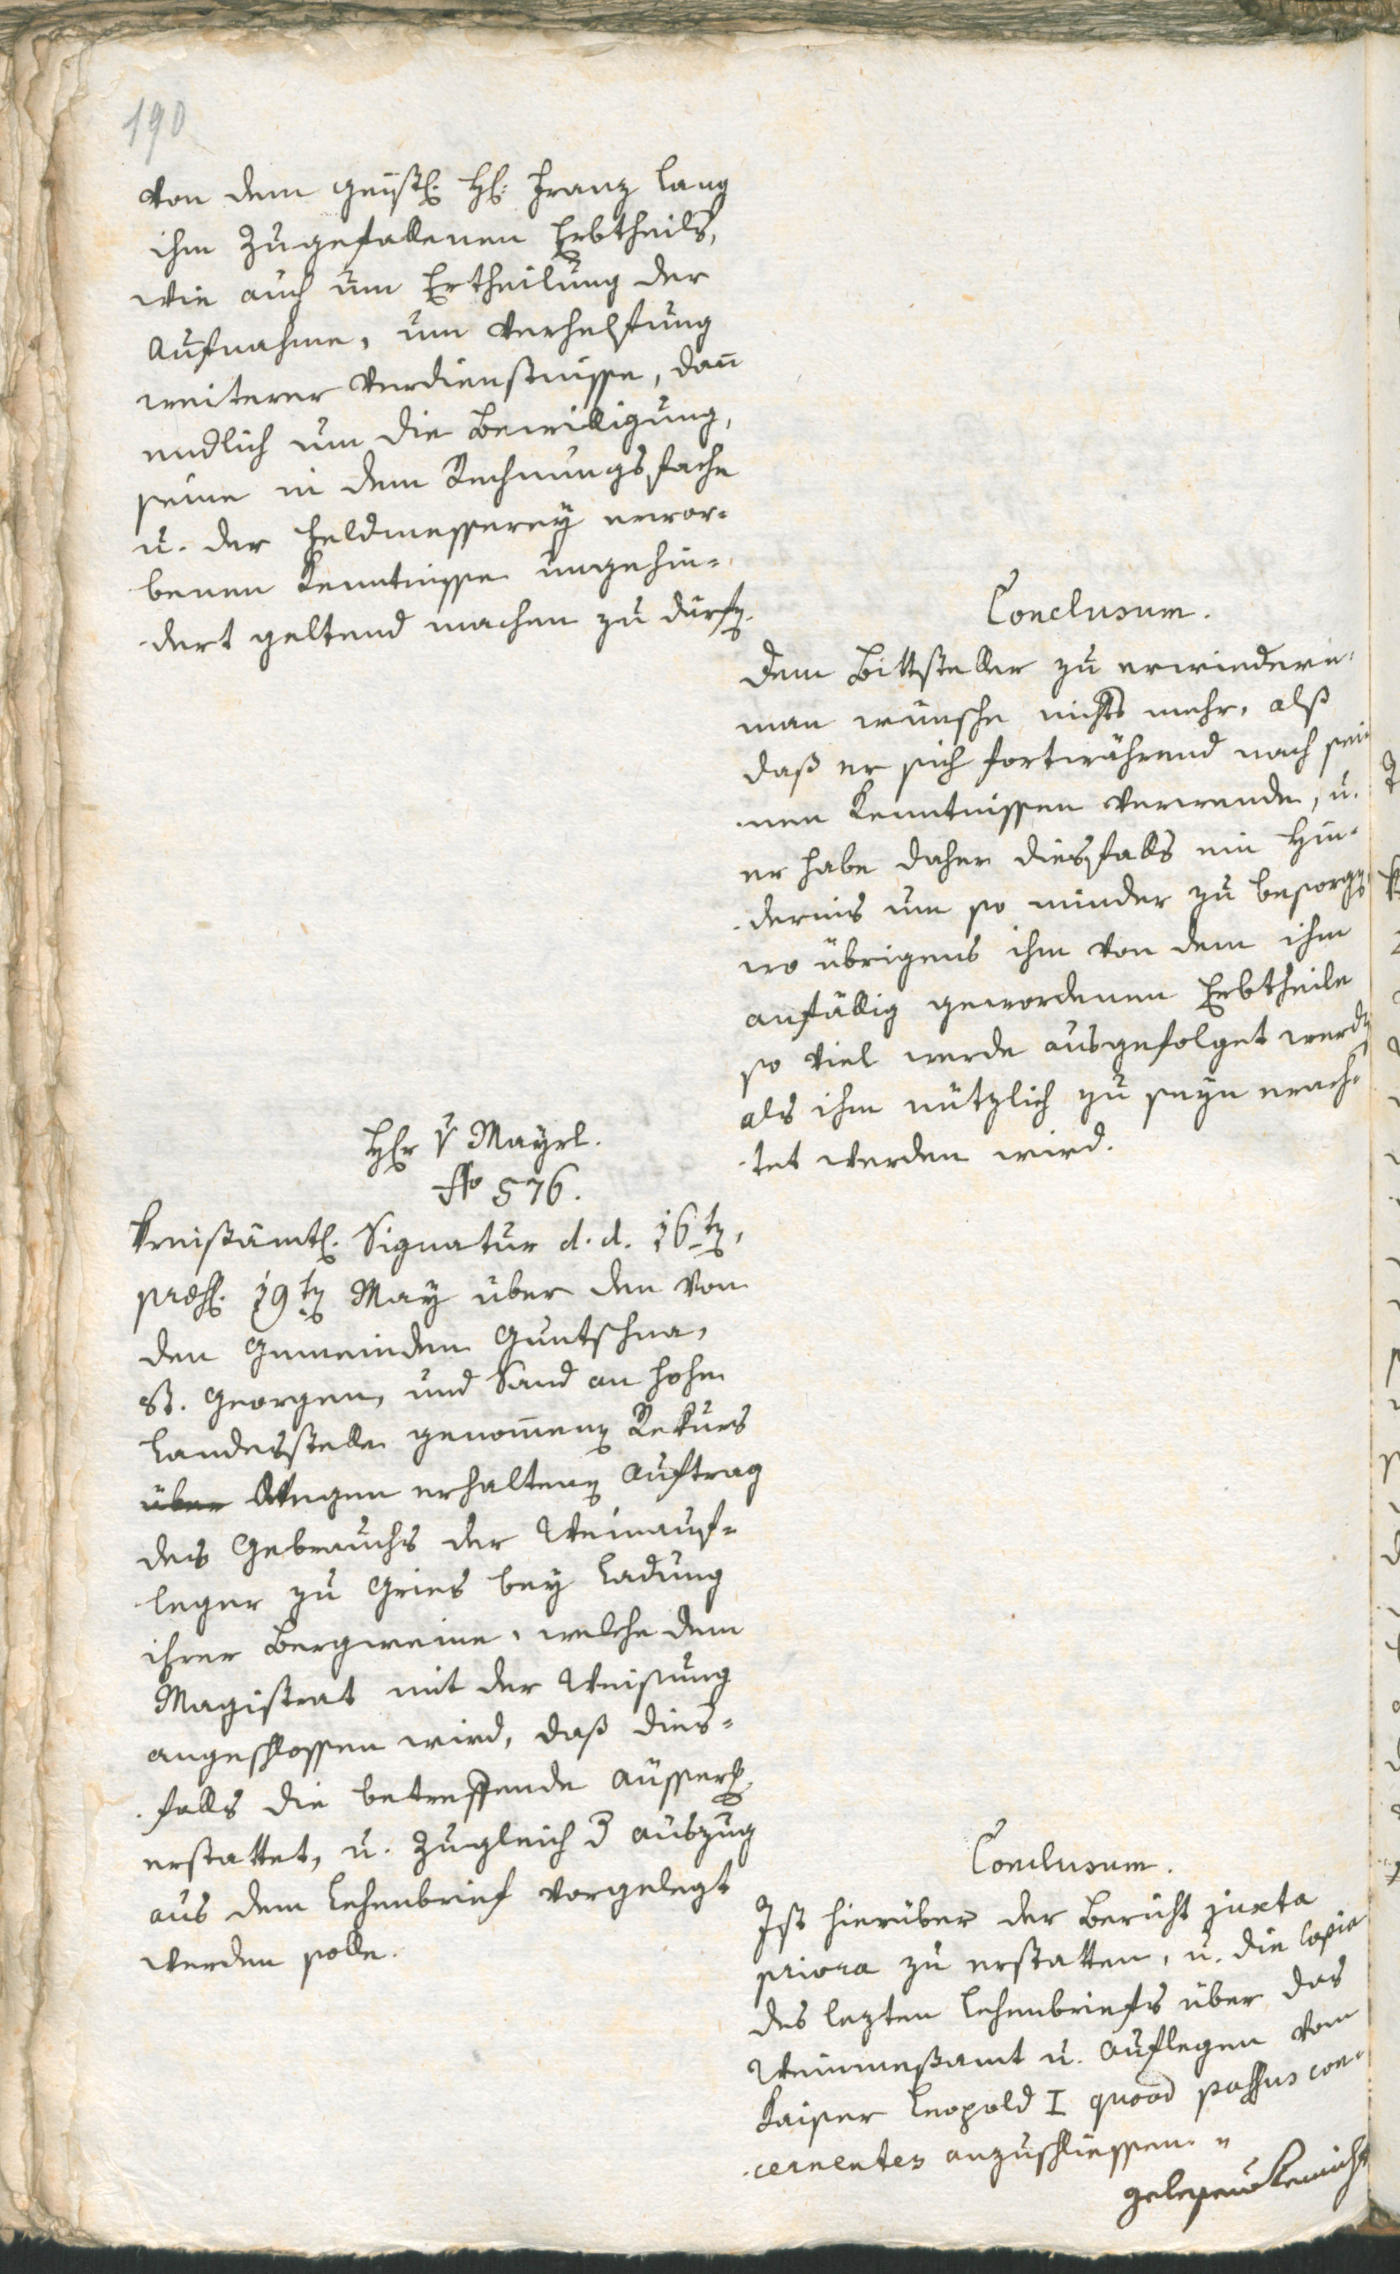 190
von dem geistl. H: Franz Lang
ihm zugefallenen Erbtheils,
wie auch um Ertheilung der
Aufnahme, um Verhelfung
weiterer Verdienstnisse, dañ
endlich um die Bewilligung,
seine in dem Rechnungsfache
u. der Feldmesserey erwor-
benen Kenntnisse ungehin-
dert geltend machen zu dürfen.
Conclusum.
Dem Bittsteller zu erwiedern:
man wünsche nichts mehr, alß
daß er sich fortwährend nach sei
nen Kenntnissen verwende, u.
er habe daher diesfalls ein Hin-
derniß um so minder zu besorgen
wo übrigens ihm von dem ihm
anfällig gewordenen Erbtheile
so viel werde ausgefolget werden
als ihm nützlich zu seyn erach-
tet werden wird.
Hr v Mayrl.
No 576.
Kreisämtl. Signatur d. d. 16ten,
praes. 19ten May über den von
den Gemeinden Guntschna,
St. Georgen, und Sand an hohe
Landesstelle genom̄enen Rekurs
über Wegen erhaltenen Auftrag
des Gebrauchs der Weinauf-
leger zu Gries bey Ladung
ihrer Bergweine, welche dem
Magistrat mit der Weisung
angeschlossen wird, daß dies-
falls die betreffende Äusserg.
erstattet, u. zugleich d Auszug
aus dem Lehenbrief vorgelegt
werden solle.
Conclusum.
Ist hierüber der Bericht juxta
priora zu erstatten, u. die Copie
des lezten Lehenbriefs über das
Weinmeßamt u. Auflegen vom
Kaiser Leopold I quoad passus con-
cernentes anzuschliessen. "
gelesen